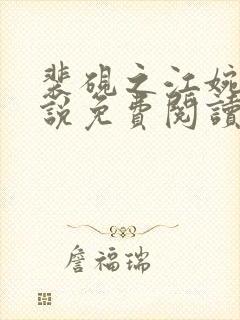 裴硯之江婉
說免費閱讀
詹福瑞